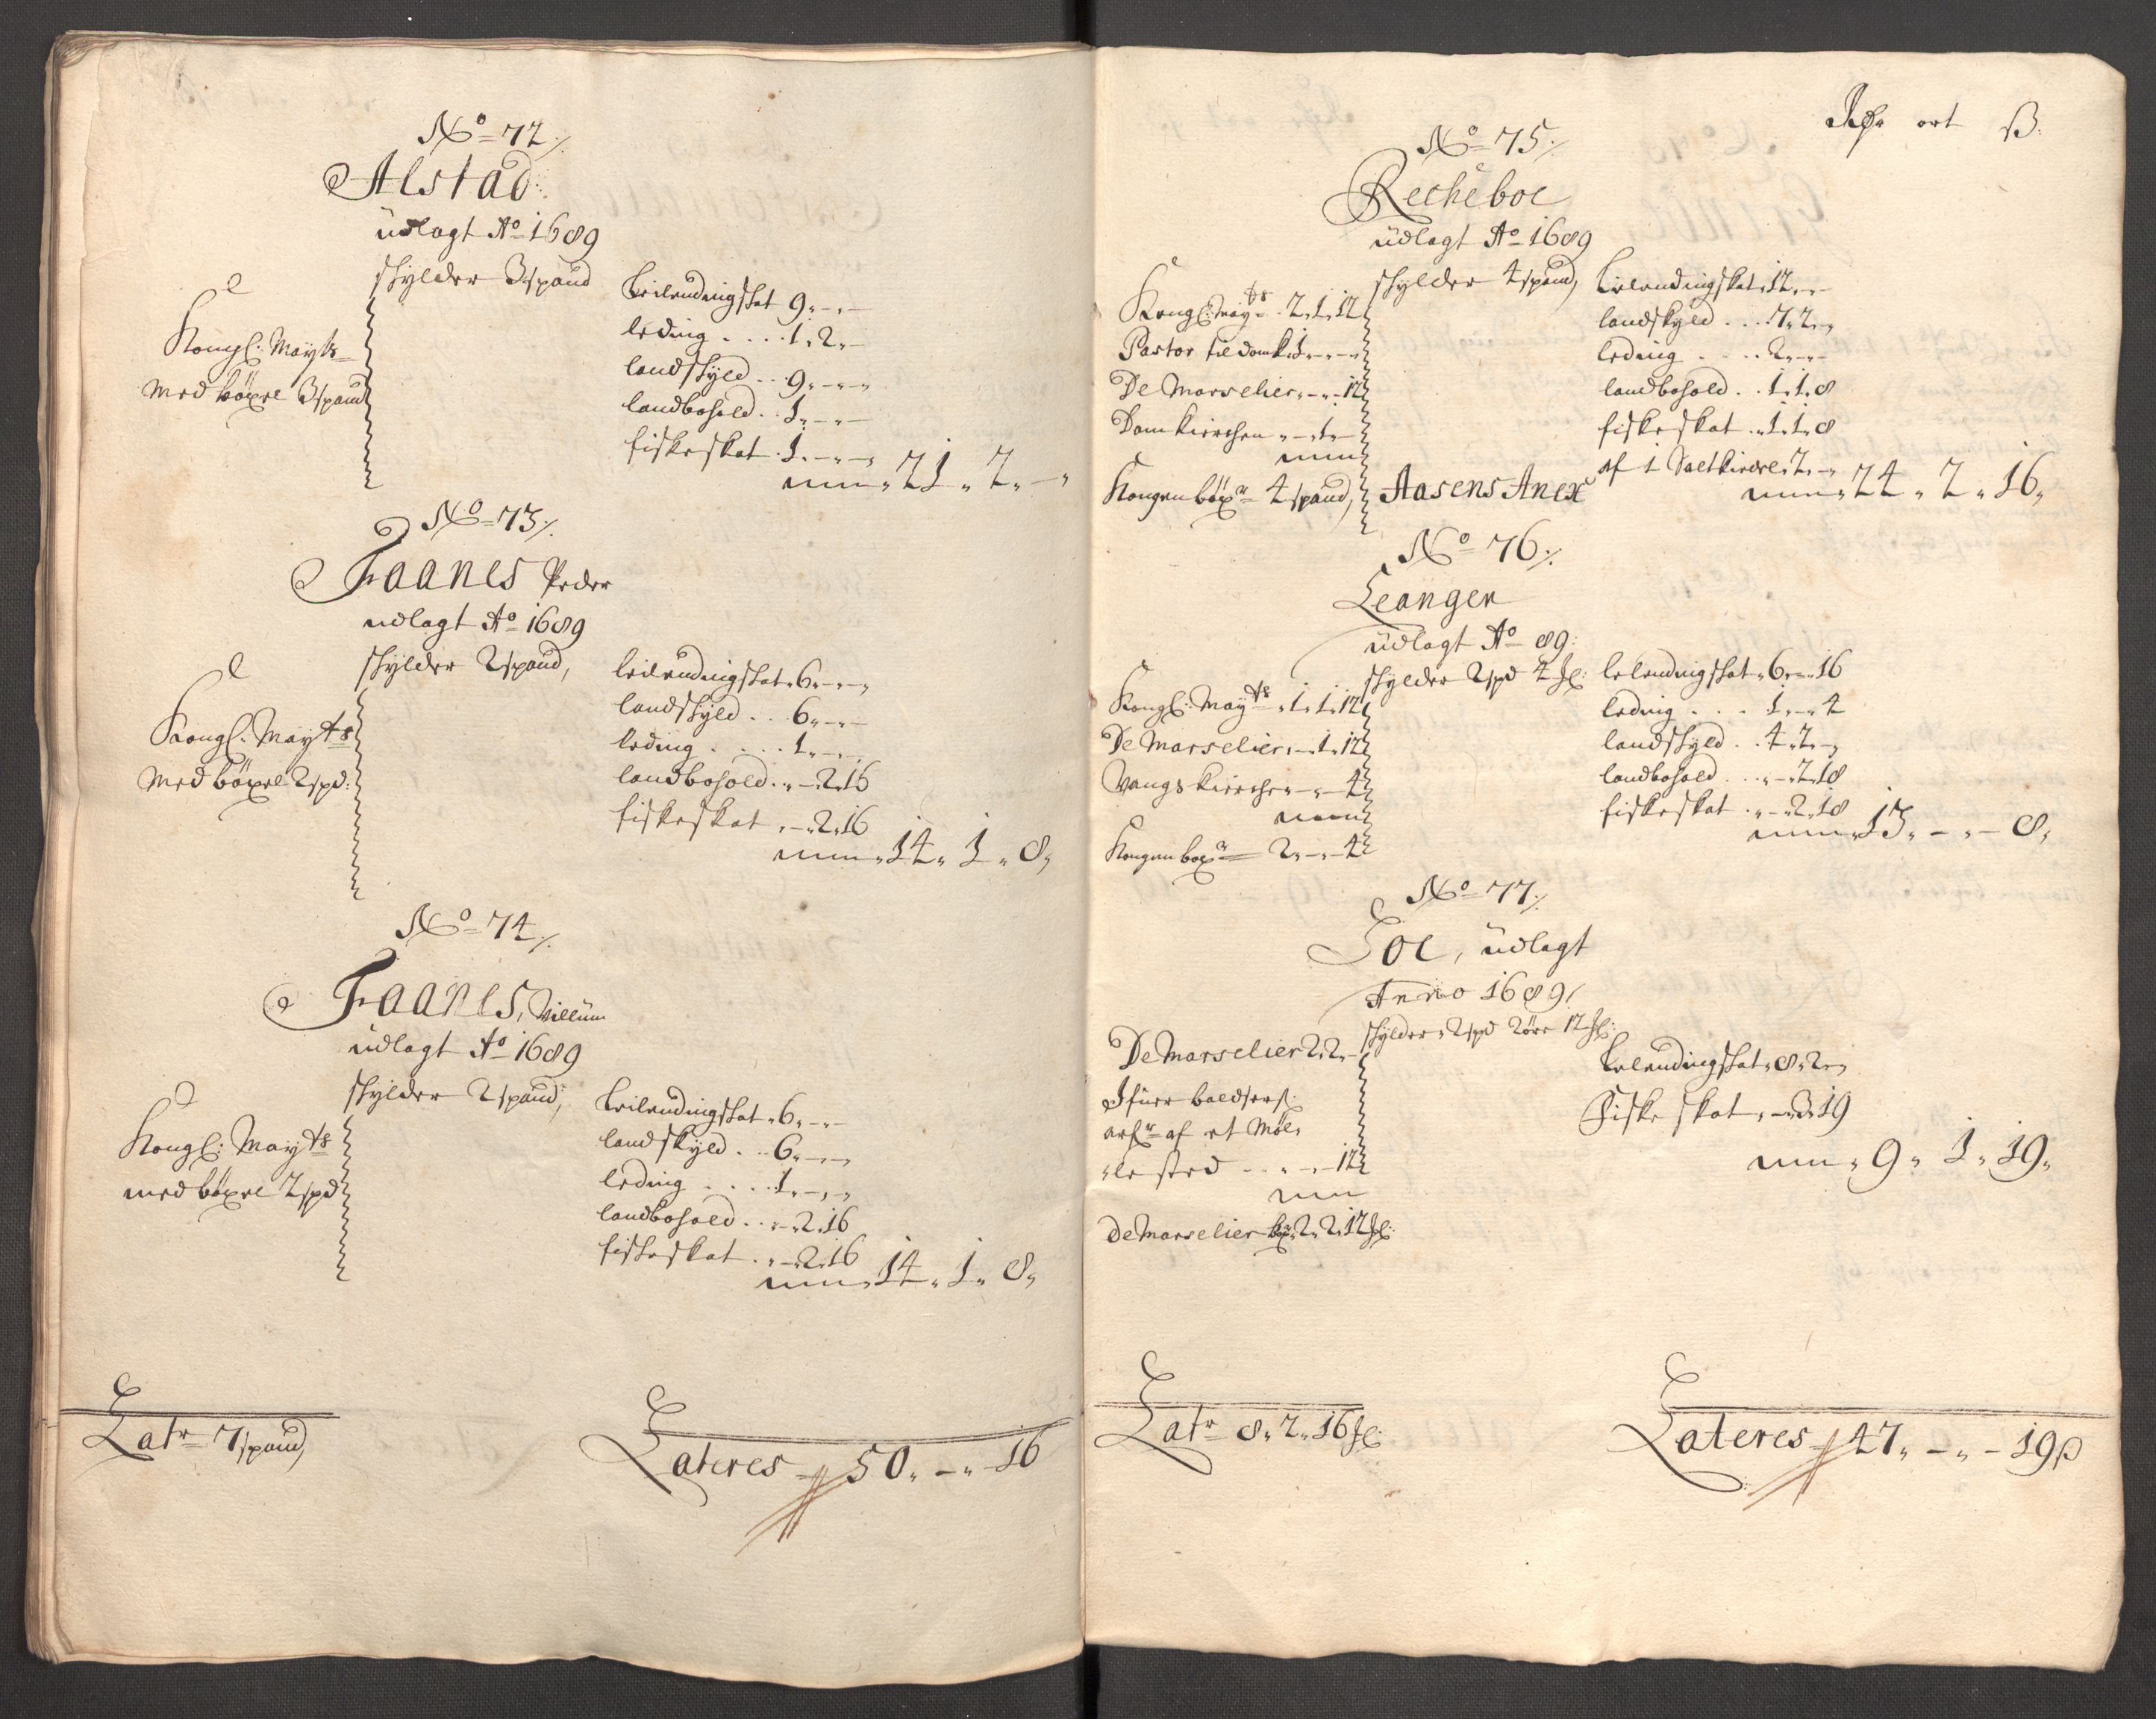 No 72 ./.
Alstad
üdlagt Ao 1689
skylder 3 spand
Kongl: Mayts
med böxel 3 spand
Leilendingskat 9 „ - „ -
leding . . . . 1 „ 2 „ -
landskyld . . 9 „ - „ -
landbohold . . 1 „ - „ -
fiskeskat . 1 „ - „ -
21 „ 2 „ -
No 73 ./.
Faanes Peder
udlagt Ao 1689
skylder 2 spand,
Kongl. Mayts
Med böxel 2 spd:
leilendingskat „ 6 „ - „ -
landskyld . . 6 „ - „ -
leding . . . . 1 „ - „ -
landbohold . „ - „ 2 „ 16
fiskeskat „ - „ 2 „ 16
14 „ 1 „ 8 „
No 74 ./.
Faanes, Villum
üdlagt Ao 1689
skylder 2 spand,
Kongl: Mayts
med böxel 2 spd
Leilendingskat „ 6 „ - „ -
landskyld . . 6 „ - „ -
leding . . . . 1 „ - „ -
landbohold . . „ - „ 2 „ 16
fiskeskat . „ - „ 2 „ 16
14 „ 1 „ 8 „
Latr 7 spand,
Lateres 50 „ - „ 16
Rdr ort ß:
No 75 ./.
Recheboe
üdlagt Ao 1689
skylder 4 spand,
Kongl: Mayts . 2 „ 1 „ 12
Pastor til domk: 1 „ - „ -
De Marselier „ - „ - 12
Domkirchen „ - „ 1 „ -
Kongen böxr 4 spand,
Leilendingskat „ 12 „ - „ -
landskyld . . . 7 „ 2 „ -
leding . . . . 2 „ - „ -
landbohold . . 1 „ 1 „ 8
fiskeskat . „ 1 „ 1 „ 8
af 1 Saltkirdel „ 2 „ -
24 „ 2 „ 16 „
Aasens Anex
No 76 ./.
Leangen
üdlagt Ao 89:
skylder 2 spd 4 Ml:
Kongl: Mayts „ 1 „ 1 „ 12
De Marselier „ - „ 1 „ 12
Vangs kirche „ - „ - 4
Kongen boxr 2 „ - „ 4
lelendingskat „ 6 „ - „ 16
leding . . . 1 „ - „ 4
landskyld . . 4 „ 2 „ -
landbohold . . . „ - „ 2 „ 18
fiskeskat . „ - „ 2 „ 18
13 „ - „ - 8 „
No 77 ./.
Loe, üdlagt
Anno 1689
skylder 2 spd 2 öre 12 Ml:
De Marselier 2 „ 2 „ -
arfr af et Møl„
„le sted . . „ - „ 12
De Marselier bex: 2 „ 2 „ 12 Ml:
Lelendingskat „ 8 „ 2 „ -
Fiske skat „ - „ 3 „ 19
9 „ 1 „ 19 „
Latr 8 „ 2 „ 16 Ml:
Lateres 47 „ - „ - 19 ß